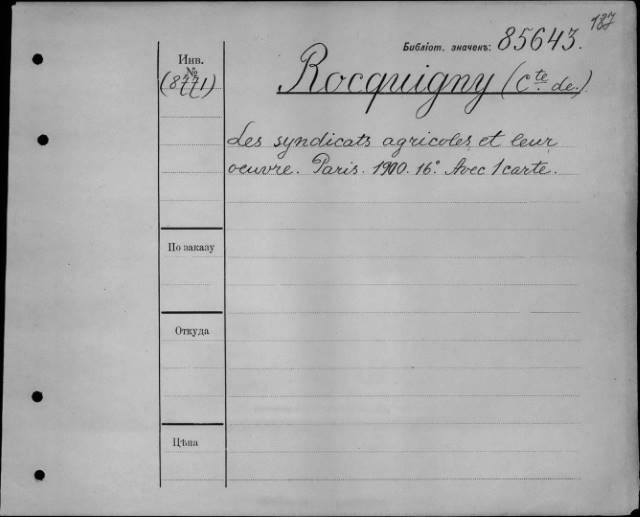 187
Библіот. значекъ: 85643.
Инв.
№
Rocquigny (Cte de.)
Les syndicats agricoles et leur
oeuvre. Paris. 1900. 16°. Avec 1 carte.
По заказу
Откуда
Цѣна